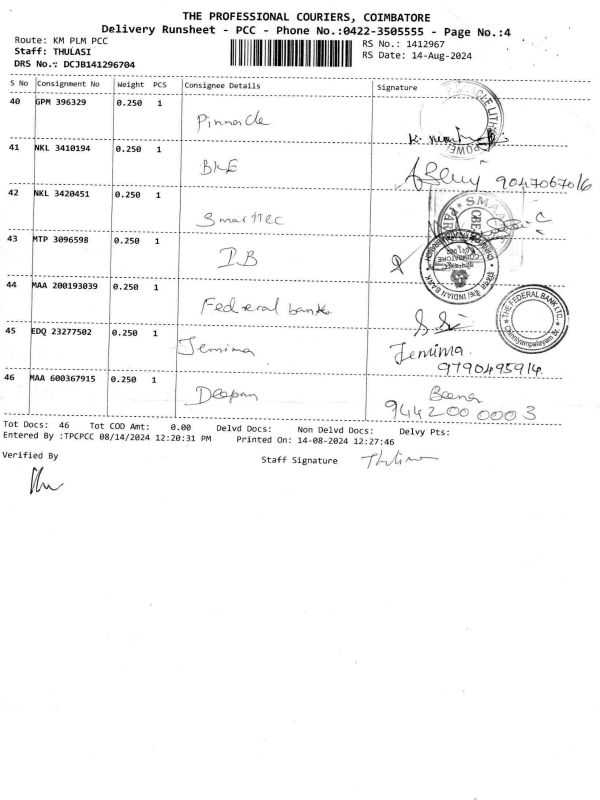 THE PROFESSIONAL COURIERS, COIMBATORE
Delivery Runsheet - PCC - Phone No.:0422-3505555 - Page No.:4
Route: KM PLM PCC RS No.: 1412967
Staff: THULASI RS Date: 14-Aug-2024
DRS No.: DCJB141296704
S No Consignment No Weight PCS Consignee Details Signature
40 GPM 396329 0.250 1
Pinnacle
41 NKL 3410194 0.250 1
BKE 9047067016
42 NKL 3420451 0.250 1
Smarttec
43 MTP 3096598 0.250 1
I.B
INDIAN BANK
44 MAA 200193039 0.250 1
Federal bank
THE FEDERAL BANK LTD.
Chinniyampalayam Br.
45 EDQ 23277502 0.250 1
Jemima Jemima.
9790495914.
46 MAA 600367915 0.250 1
Deepan Beena
9442000003
Tot Docs: 46 Tot COD Amt: 0.00 Delvd Docs: Non Delvd Docs: Delvy Pts:
Entered By :TPCPCC 08/14/2024 12:20:31 PM Printed On: 14-08-2024 12:27:46
Verified By Staff Signature